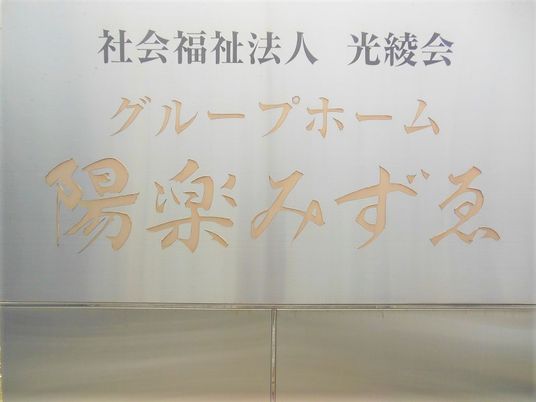 社会福祉法人　光綾会
グループホーム
陽楽みずゑ